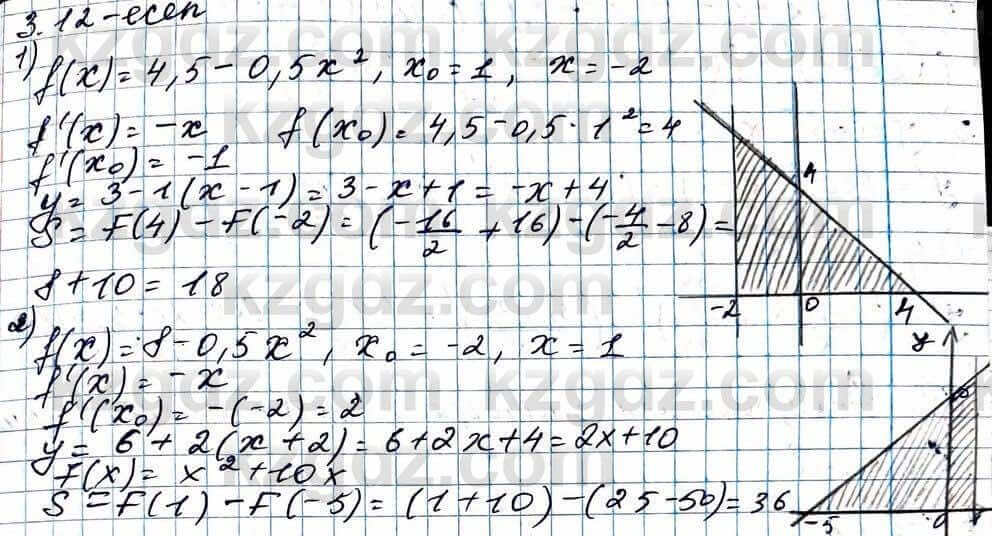 3.12-есеп
1) f(x) = 4,5 - 0,5x², x₀ = 1, x = -2
f'(x) = -x f(x₀) = 4,5 - 0,5 · 1² = 4
f'(x₀) = -1
y = 3 - 1(x - 1) = 3 - x + 1 = -x + 4
S = F(4) - F(-2) = (-16/2 + 16) - (-4/2 - 8) =
8 + 10 = 18
4
-2 0 4
2) f(x) = 8 - 0,5x², x₀ = -2, x = 1
f'(x) = -x
f'(x₀) = -(-2) = 2
y = 6 + 2(x + 2) = 6 + 2x + 4 = 2x + 10
F(x) = x² + 10x
S = F(1) - F(-5) = (1 + 10) - (25 - 50) = 36
y
-5 0 1
kzgdz.com